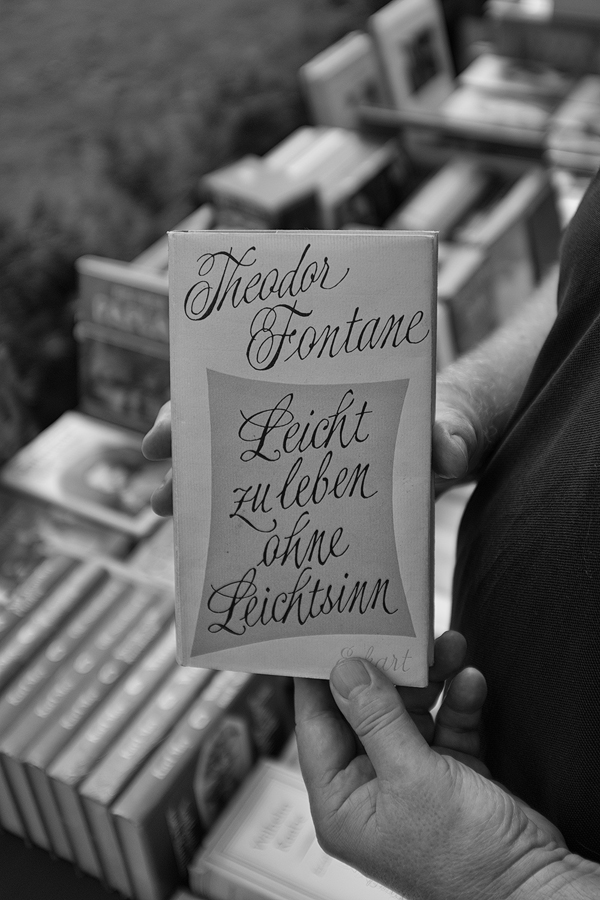 Theodor
Fontane
Leicht
zu leben
ohne
Leichtsinn